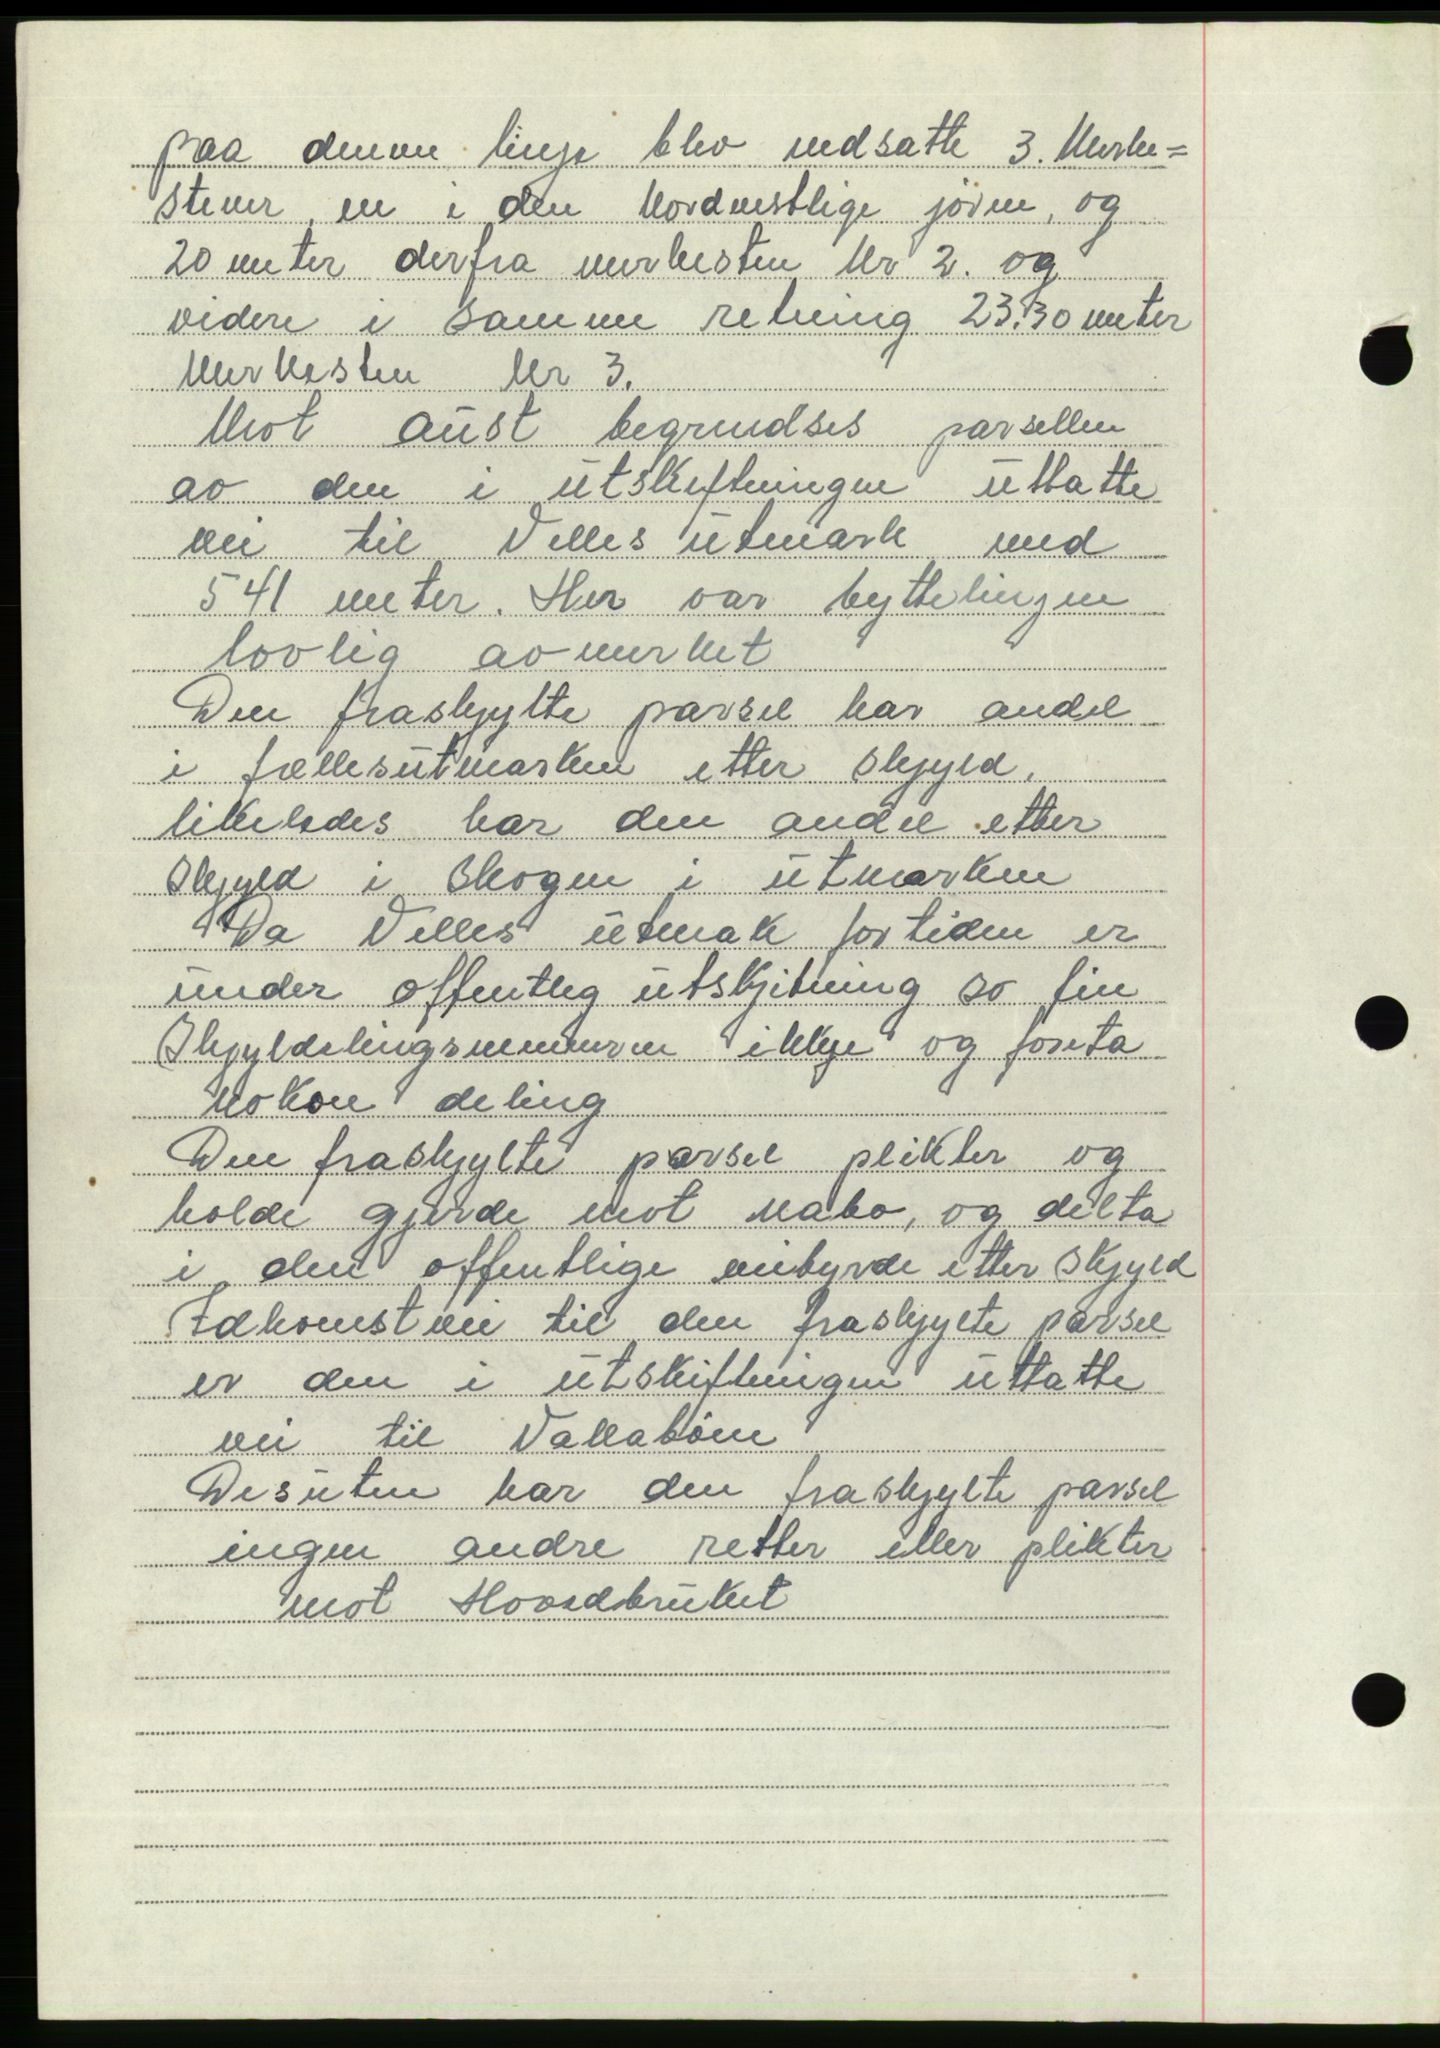 paa denne linje blev nedsatte 3. Merke=
stener, en i den Nordvestlige jørne, og
20 meter derfra merkesten Nr 2. og
videre i samme retning 23.30 meter
Merkesten Nr 3.
Mot aust begrendses parsellen
av den i utskiftningen uttatte
vei til Velles utmark med
541 meter. Her var byttelinjen
lovlig avmerket
Den fraskyldte parsel har andel
i fællesutmarken etter skjyld.
likeledes har den andel etter
skjyld i skogen i utmarken
Da Velles utmak for tiden er
under offentleg utskjitning so fin
Skjyldelingsmennerne ikkje og foreta
nokon deling
Den fraskjylte parsel plikter og
holde gjerde mot nabo, og delta
i den offentlige veibyrde etter skjyld
Adkomstvei til den fraskjylte parsel
er den i utskiftningen uttatte
vei til Vallabøen
Desuten har den fraskjylte parsel
ingen andre retter eller plikter
mot Hovedbruket